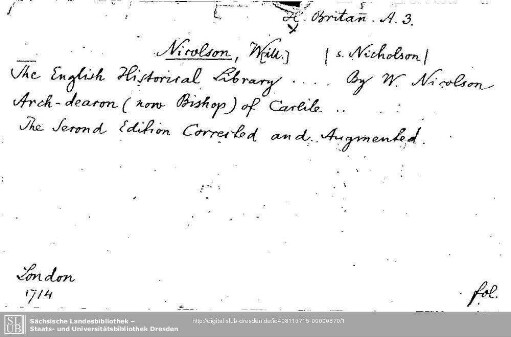 H. Britan. A. 3.
Nicolson, Will.] [s. Nicholson]
The English Historical Library .... By W. Nicolson
Arch-deacon (now Bishop) of Carlile ..
The Second Edition Corrected and Augmented.
London
1714
fol.
Sächsische Landesbibliothek –
Staats- und Universitätsbibliothek Dresden